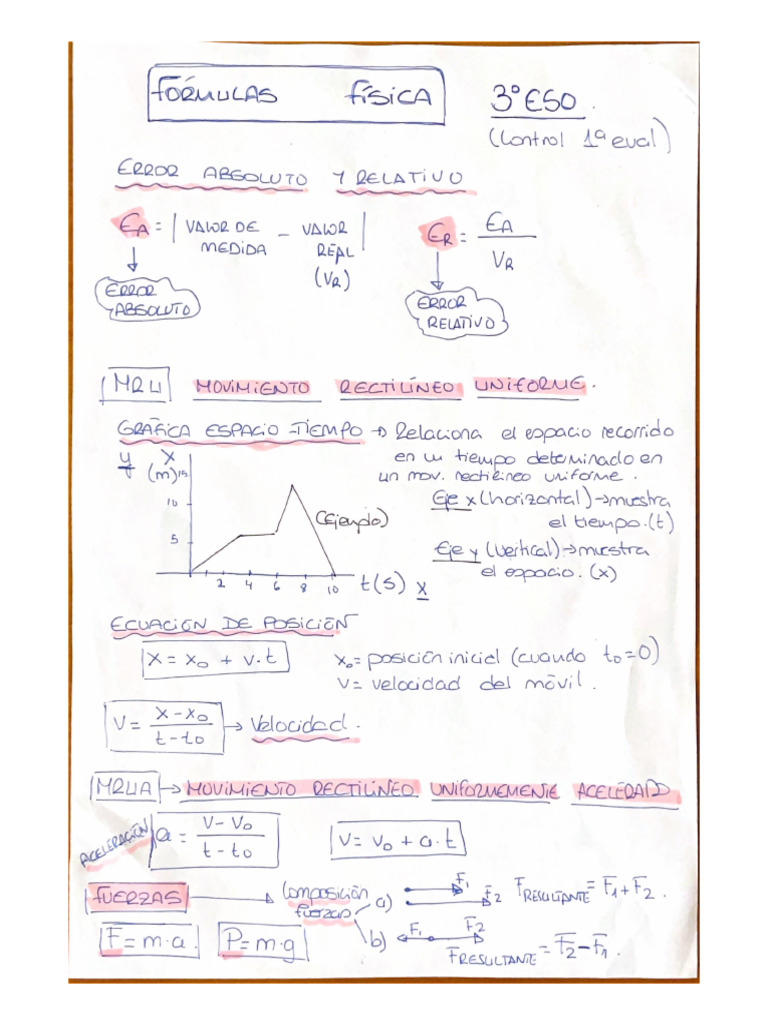 FÓRMULAS FÍSICA 3º ESO.
(Control 1ª eval)
ERROR ABSOLUTO Y RELATIVO
EA = | VALOR DE MEDIDA - VALOR REAL (VR) | ER = EA / VR
ERROR ABSOLUTO ERROR RELATIVO
MRU MOVIMIENTO RECTILÍNEO UNIFORME.
GRÁFICA ESPACIO-TIEMPO → Relaciona el espacio recorrido
en un tiempo determinado en
un mov. rectilíneo uniforme.
Eje x (horizontal) → muestra
el tiempo. (t)
Eje y (vertical) → muestra
el espacio. (x)
y x
(m) 15
10
5
(Ejemplo)
2 4 6 8 10 t(s) x
ECUACIÓN DE POSICIÓN
x = x0 + v·t x0 = posición inicial (cuando t0=0)
v = velocidad del móvil.
v = x-x0 / t-t0 → Velocidad.
MRUA → MOVIMIENTO RECTILÍNEO UNIFORMEMENTE ACELERADO
ACELERACIÓN a = v-v0 / t-t0 v = v0 + a·t
FUERZAS → Composición fuerzas a) F1 F2 FRESULTANTE = F1 + F2.
F = m·a. P = m·g b) F1 F2 FRESULTANTE = F2 - F1.